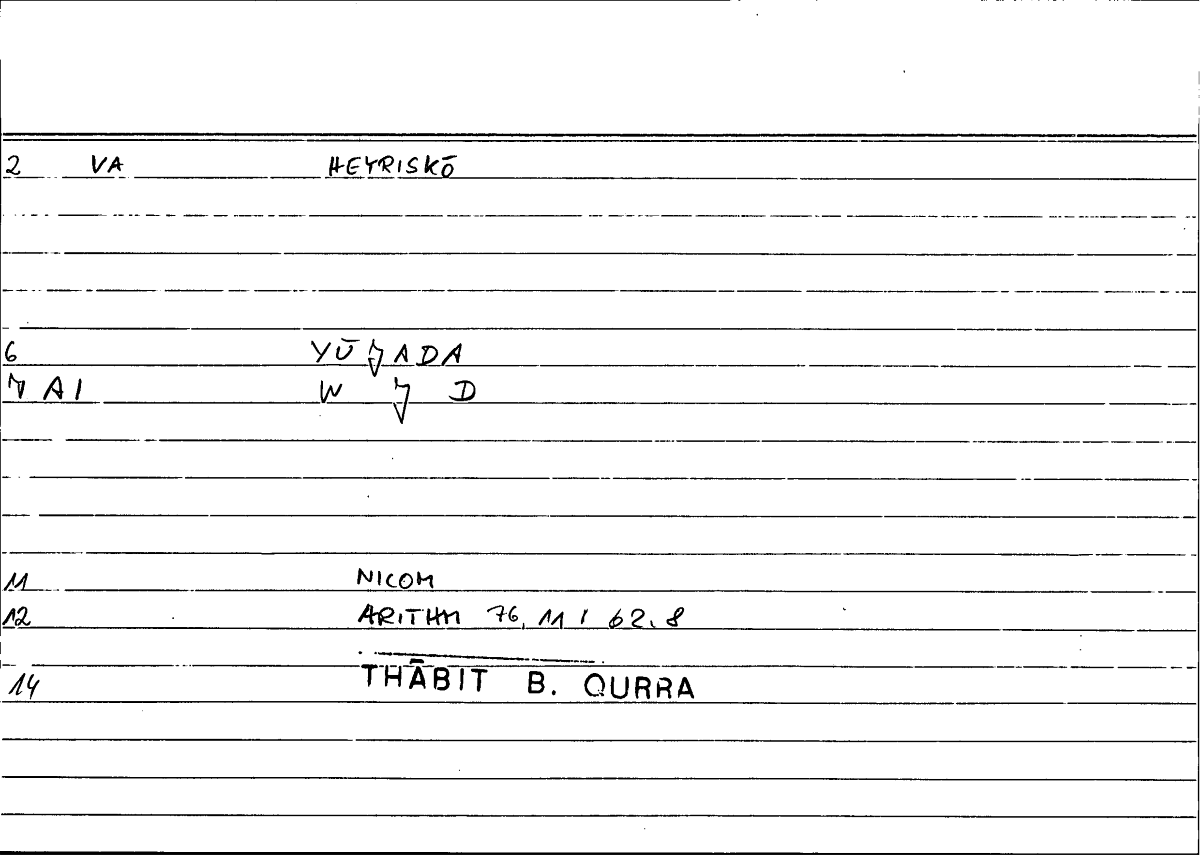 2 VA HEYRISKŌ
6 YŪǦADA
7 AI W Ǧ D
11 NICOM
12 ARITHM 76,11 / 62.8
14 THĀBIT B. QURRA